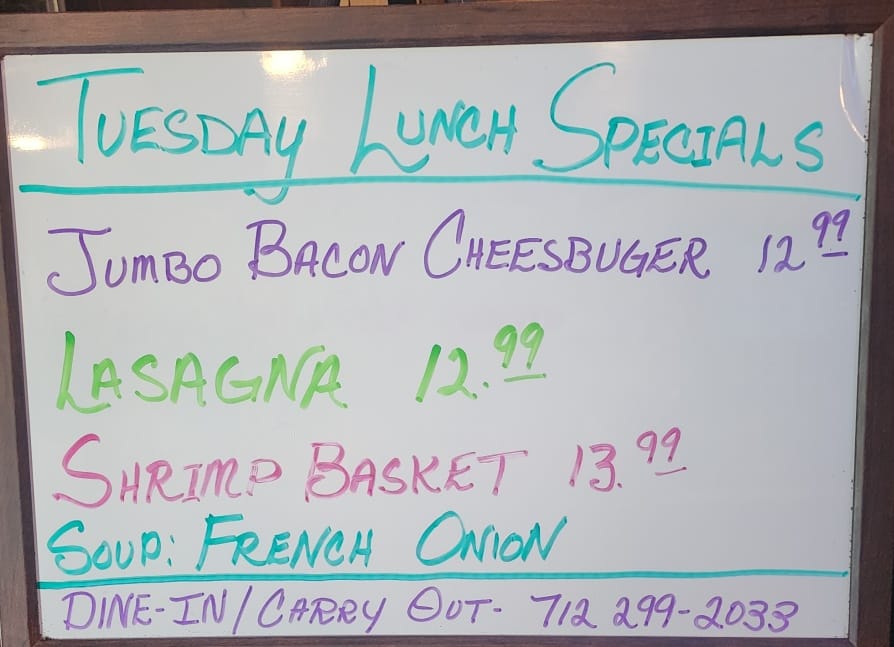 TUESDAY LUNCH SPECIALS
JUMBO BACON CHEESBUGER 12 99
LASAGNA 12.99
SHRIMP BASKET 13.99
SOUP: FRENCH ONION
DINE-IN/CARRY OUT- 712 299-2033